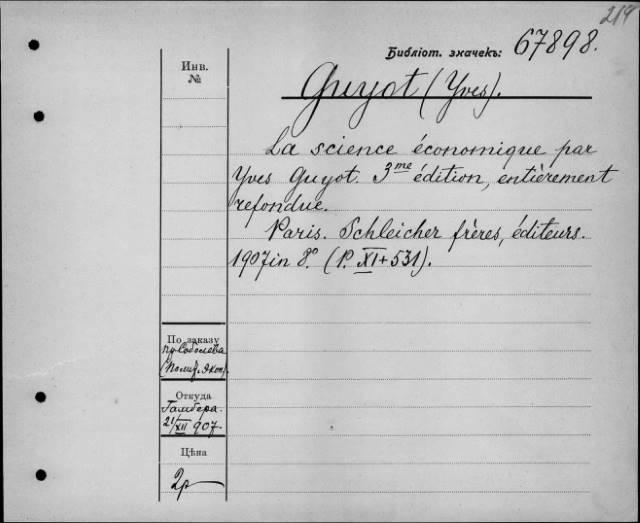 214
Библіот. значекъ: 67898.
Инв.
№
Guyot (Yves).
La science économique par
Yves Guyot. 3me édition, entièrement
refondue.
Paris. Schleicher frères, éditeurs.
1907 in 8°. (P. XI+531).
По заказу
пр. Соболева
(Полит. Экон.)
Откуда
Гамбера.
21/XII 907.
Цѣна
2р